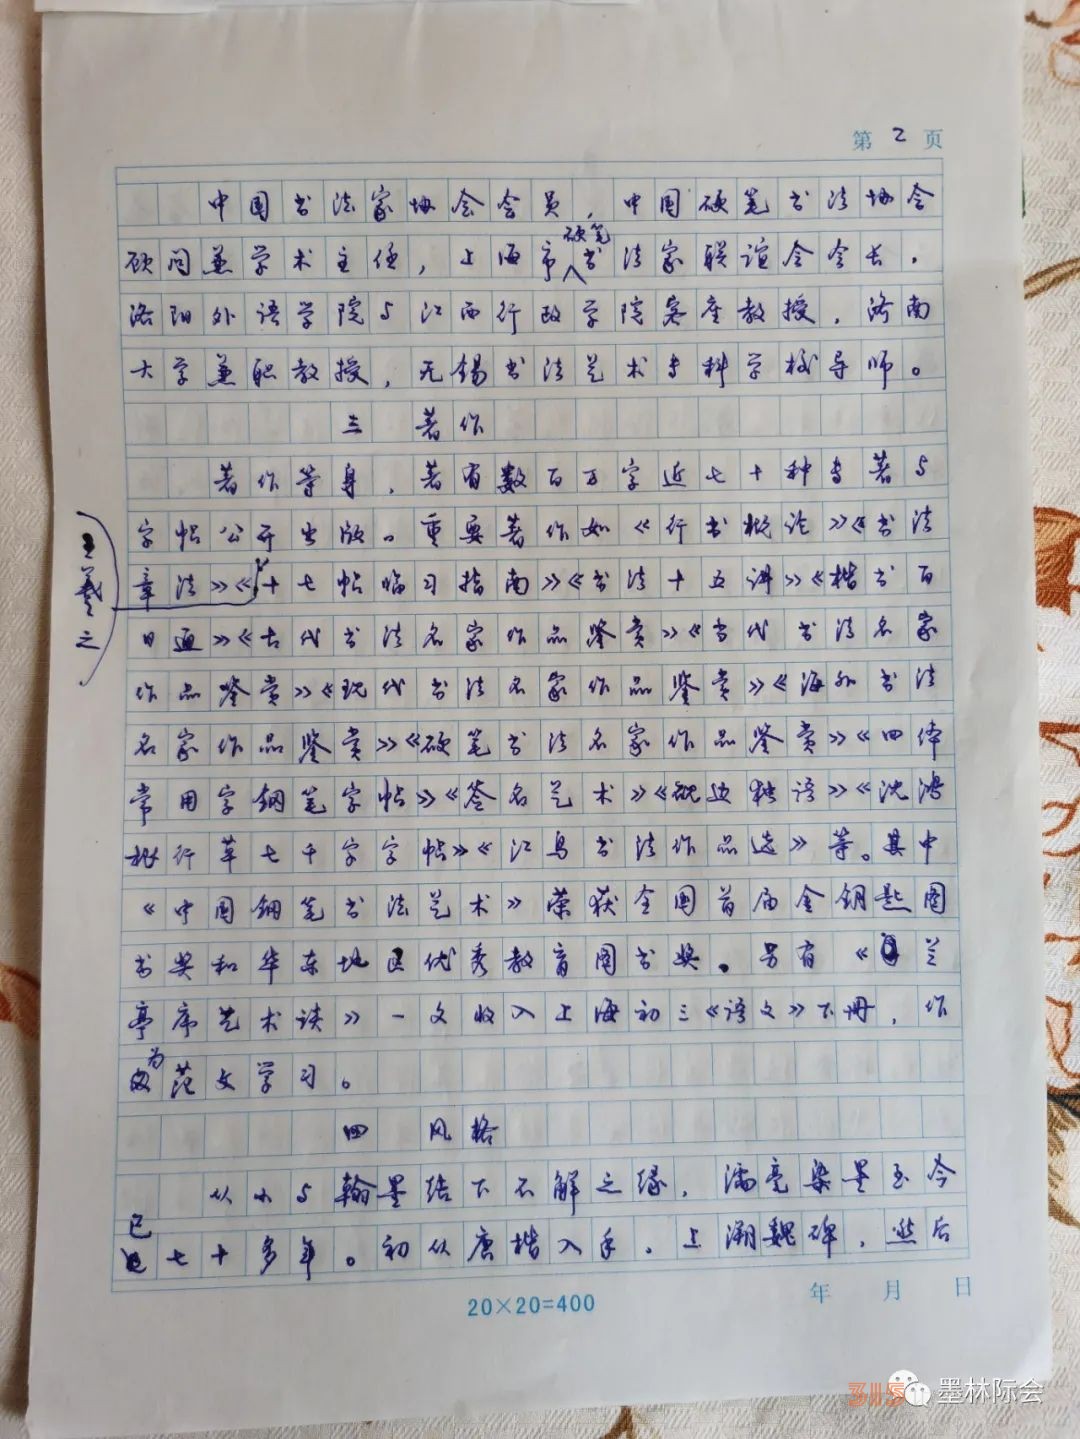 第 2 页
中国书法家协会会员，中国硬笔书法协会
顾问兼学术主任，上海市硬笔书法家联谊会会长，
洛阳外语学院与江西行政学院客座教授，济南
大学兼职教授，无锡书法艺术专科学校导师。
三 著作
著作等身，著有数百万字近七十种专著与
字帖公开出版。重要著作如《行书概论》《书法
章法》《王羲之十七帖临习指南》《书法十五讲》《楷书百
日通》《古代书法名家作品鉴赏》《当代书法名家
作品鉴赏》《现代书法名家作品鉴赏》《海外书法
名家作品鉴赏》《硬笔书法名家作品鉴赏》《四体
常用字钢笔字帖》《签名艺术》《砚边独语》《沈鸿
根行草七千字字帖》《江鸟书法作品选》等。其中
《中国钢笔书法艺术》荣获全国首届金钥匙图
书奖和华东地区优秀教育图书奖。另有《兰
亭序艺术谈》一文收入上海初三《语文》下册，作
为范文学习。
四 风格
从小与翰墨结下不解之缘，濡毫染墨至今
已七十多年。初从唐楷入手，上溯魏碑，然后
20×20=400
年 月 日
315
墨林际会